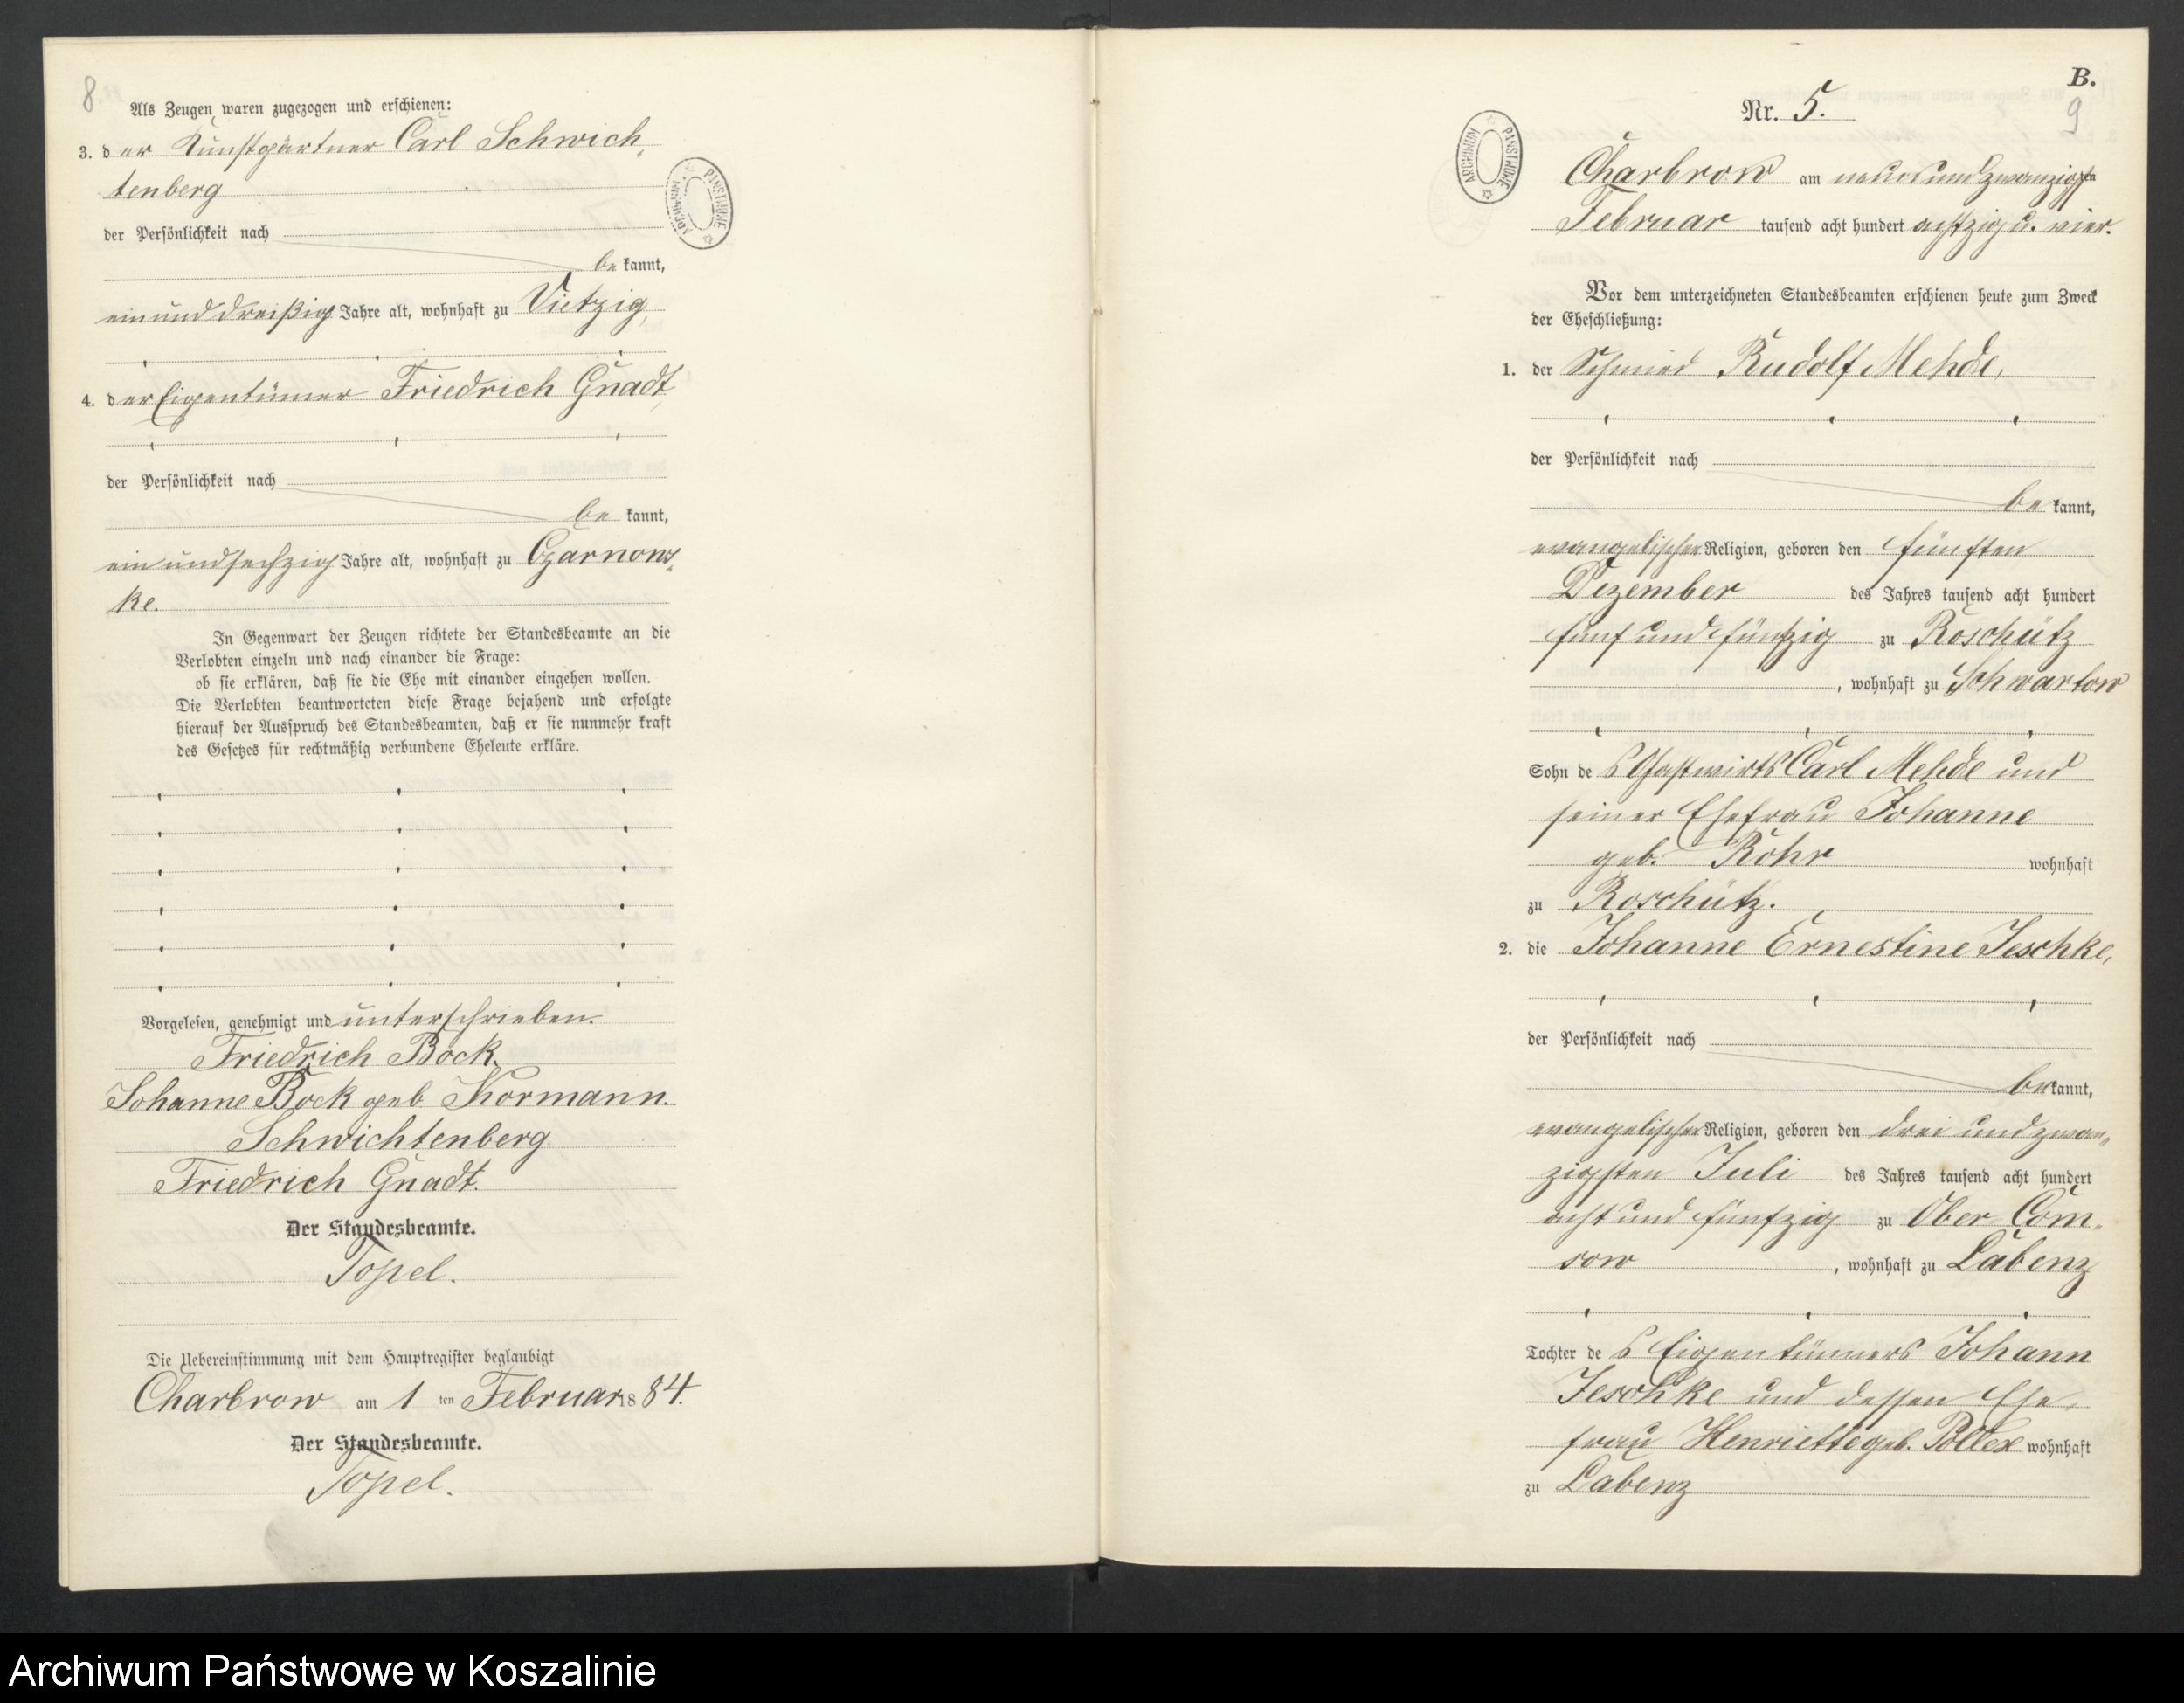 8.
Als Zeugen waren zugezogen und erschienen:
3. der Kunstgärtner Carl Schwich
tenberg
der Persönlichkeit nach
be kannt,
ein und dreißig Jahre alt, wohnhaft zu Vietzig,
4. der Eigentümer Friedrich Gnadt,
der Persönlichkeit nach
be kannt,
ein und sechzig Jahre alt, wohnhaft zu Czarnows
ke.
In Gegenwart der Zeugen richtete der Standesbeamte an die
Verlobten einzeln und nach einander die Frage:
ob sie erklären, daß sie die Ehe mit einander eingehen wollen.
Die Verlobten beantworteten diese Frage bejahend und erfolgte
hierauf der Ausspruch des Standesbeamten, daß er sie nunmehr kraft
des Gesetzes für rechtmäßig verbundene Eheleute erkläre.
Vorgelesen, genehmigt und unterschrieben.
Friedrich Bock.
Johanne Bock geb Kormann.
Schwichtenberg.
Friedrich Gnadt.
Der Standesbeamte.
Topel.
Die Uebereinstimmung mit dem Hauptregister beglaubigt
Charbrow am 1 ten Februar 1884.
Der Standesbeamte.
Topel.
ARCHIWUM PAŃSTWOWE
B.
9
Nr. 5.
ARCHIWUM PAŃSTWOWE
Charbrow am neun und zwanzigsten
Februar tausend acht hundert achtzig u. vier.
Vor dem unterzeichneten Standesbeamten erschienen heute zum Zweck
der Eheschließung:
1. der Schmied Rudolf Mehde,
der Persönlichkeit nach
be kannt,
evangelischer Religion, geboren den fünften
Dezember des Jahres tausend acht hundert
fünf und fünfzig zu Roschütz
, wohnhaft zu Schwartow
Sohn des Gastwirts Carl Mehde und
seiner Ehefrau Johanne
geb. Rohr wohnhaft
zu Roschütz.
2. die Johanne Ernestine Jeschke,
der Persönlichkeit nach
bekannt,
evangelischer Religion, geboren den drei und zwan-
zigsten Juli des Jahres tausend acht hundert
acht und fünfzig zu Ober Com-
sow , wohnhaft zu Labenz
Tochter des Eigentümers Johann
Jeschke und dessen Ehe-
frau Henriette geb. Pollex wohnhaft
zu Labenz
Archiwum Państwowe w Koszalinie